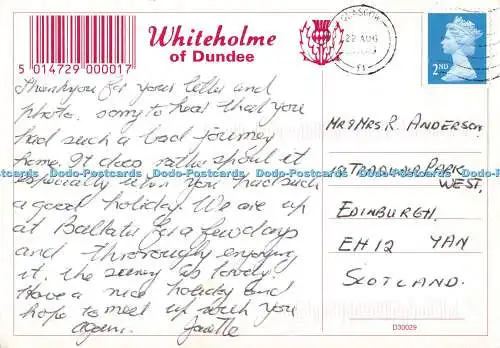 Whiteholme
of Dundee
5 014729 000017
GLASGOW
22 AUG
2ND
Thankyou for your letter and
photo. sorry to hear that you
had such a bad journey
home. It does rather spoil it
especially when you had such
a good holiday. We are up
at Ballater for a few days
and thoroughly enjoying
it. the scenery is lovely.
Have a nice holiday and
hope to meet up with you
again.
MR & MRS R. ANDERSON
PARK
WEST,
EDINBURGH,
EH12 YAN
SCOTLAND.
Dodo-Postcards Dodo-Postcards Dodo-Postcards Dodo-Postcards
D30029